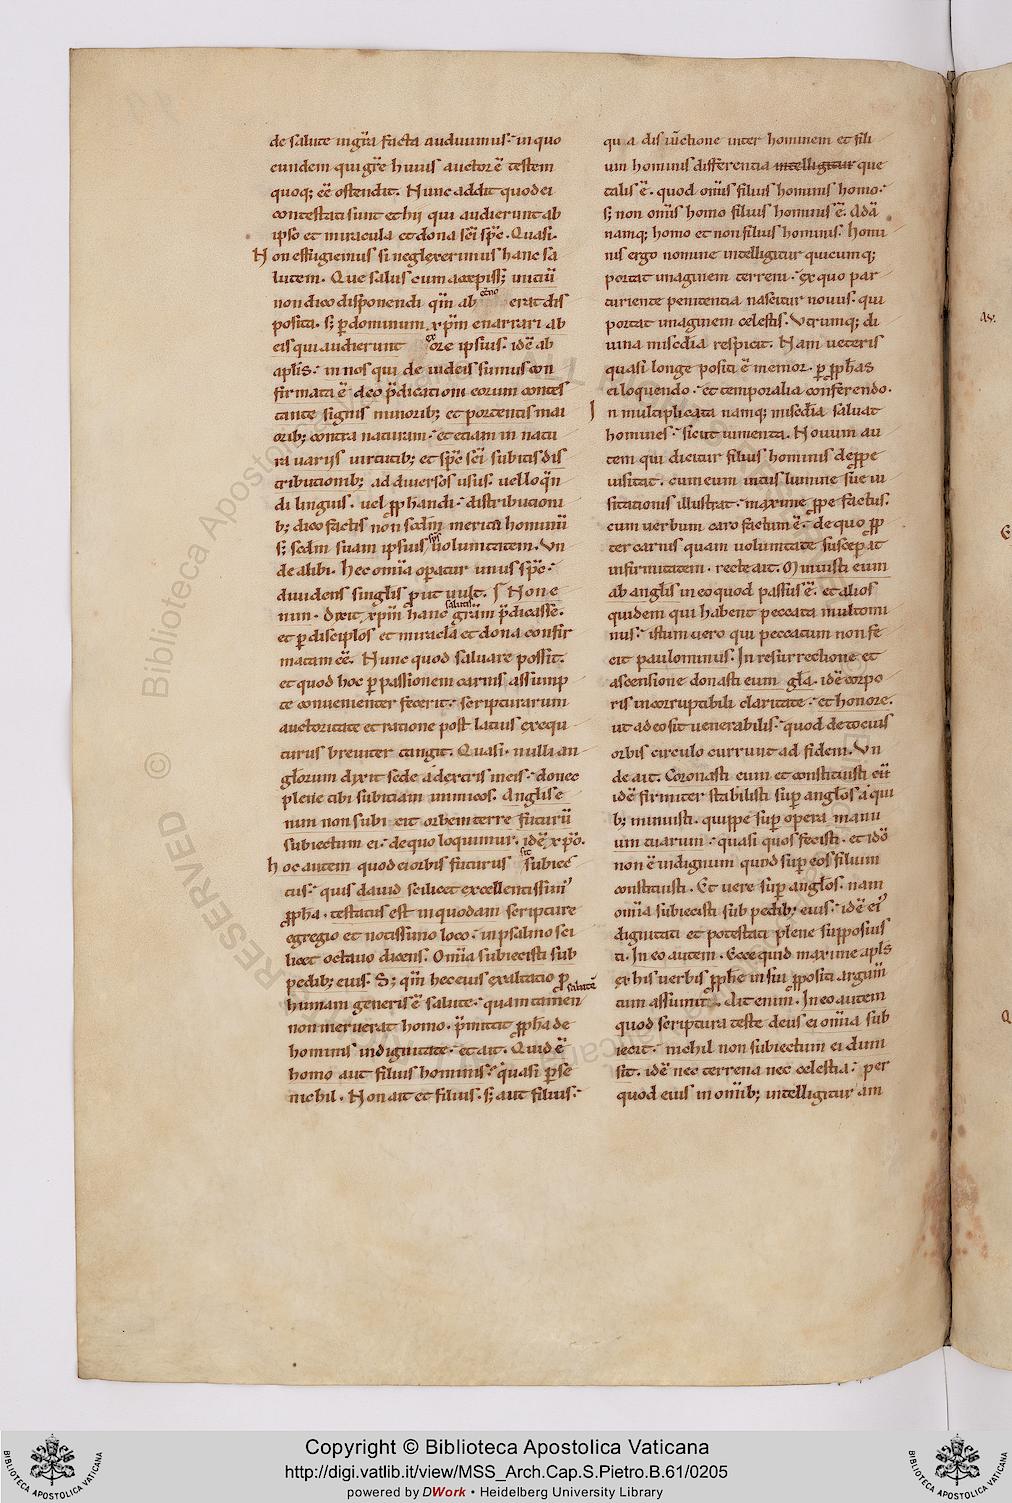 de salute ingr̄a facta audiuimus. in quo
eundem qui gr̄e huius auctor ē testem
quoq; eē ostendit. Nunc addit quod ei
contestati sunt et hij qui audierunt ab
ipso et miracula et dona sc̄i sp̄c. Quasi.
Non effugiemus si neglexerimus hanc sa
lutem. Que salus cum accepiss; initiū
non dico disponendi qm̄ ab eterno erat dis
posita. s; p dominum xp̄m enarrari ab
eis qui audierunt ex ore ipsius. idē ab
aplis. in nos qui de iudeis sumus con
firmata ē deo p̄dicationi eorum contes
tante signis minorib; et portentis mai
orib; contra naturam. et etiam in natu
ra uarijs uirtutib; et sp̄c sc̄i subitis dis
tributionib; ad diuersos usus. uel loq̄n
di linguis. uel pph̄andi. distributioni
b; dico factis non scd̄m merita hominū
s; scd̄m suam ipsius sp̄s uoluntatem. Vn
de alibi. hec om̄ia opatur unus sp̄c.
diuidens singlis put uult. Non e
nim. dixit xp̄m hanc salutis gr̄am p̄dicasse.
et p disciplos et miracla et dona confir
matam eē. Nunc quod saluare possit.
et quod hoc p passionem carnis assump
te conuenienter fecerit. scripturarum
auctoritate et ratione post latius exequ
turus breuiter tangit. Quasi. nulli an
glorum dixit sede a dextris meis. donec
plene tibi subitiam inimicos. Anglis e
nim non subiecit orbem terre futurū
subiectum ei. de quo loquimur. idē xp̄o.
hoc autem quod ei orbis futurus sit subiec
tus. quis dauid scilicet excellentissimꝰ
pph̄a. testatus est in quodam scripture
egregio et notissimo loco. in psalmo sci
licet octauo dicens. Om̄ia subiecisti sub
pedib; eius. S; qm̄ hec eius exaltatio p
humani generis ē salute. quam tamen salutē
non meruerat homo. p̄mittit pph̄a de
hominis indignitate. et ait. Quid ē
homo aut filius hominis. quasi p se
nichil. Non ait et filius. s; aut filius.
qui a disiūctione inter hominem et fili
um hominis differentia intelligitur que
talis ē. quod om̄is filius hominis homo.
s; non om̄is homo filius hominis ē. Adā
namq; homo et non filius hominis. Homi
nis ergo nomine intelligitur quicumq;
portat imaginem terreni. ex quo par
turiente penitentia nascitur nouus. qui
portat imaginem celestis. Vtrumq; di
uina misc̄dia respicit. Nam ueteris
quasi longe positi ē memor. p pph̄as
ei loquendo. et temporalia conferendo.
In multiplicata namq; misc̄dia saluat
homines. sicut iumenta. Nouum au
tem qui dicitur filius hominis de ppe
uisitat. cum eum intus lumine sue ui
sitationis illustrat. maxime ppe factus.
cum uerbum caro factum ē. de quo pp
ter carius quam uoluntate suscepat
infirmitatem. recte ait. Minuisti eum
ab anglis in eo quod passus ē. et alios
quidem qui habent peccata multomi
nus. istum uero qui peccatum non fe
cit paulominus. In resurrectione et
ascensione donasti eum gla. idē corpo
ris incorruptibili claritate. et honore.
ut adeo sit uenerabilis. quod de tocius
orbis circulo currunt ad fidem. Vn
de ait. Coronasti eum et constituisti eū
idē firmiter stabilisti sup anglos a qui
b; minuisti. quippe sup opera manu
um tuarum. quasi quos fecisti. et idō
non ē indignum quod sup eos filium
constituisti. Et uere sup anglos. nam
om̄ia subiecisti sub pedib; eius. idē eiꝰ
dignitati et potestati plene supposuis
ti. In eo autem. Ecce quid maxime apls
ex his uerbis pph̄e in sui ppositi argum̄
tum assumit. dic enim. In eo autem
quod scriptura teste deus ei om̄ia sub
iecit. nichil non subiectum ei dimi
sit. idē nec terrena nec celestia. per
quod eius in om̄ib; intelligitur am
Copyright © Biblioteca Apostolica Vaticana
http://digi.vatlib.it/view/MSS_Arch.Cap.S.Pietro.B.61/0205
powered by DWork • Heidelberg University Library